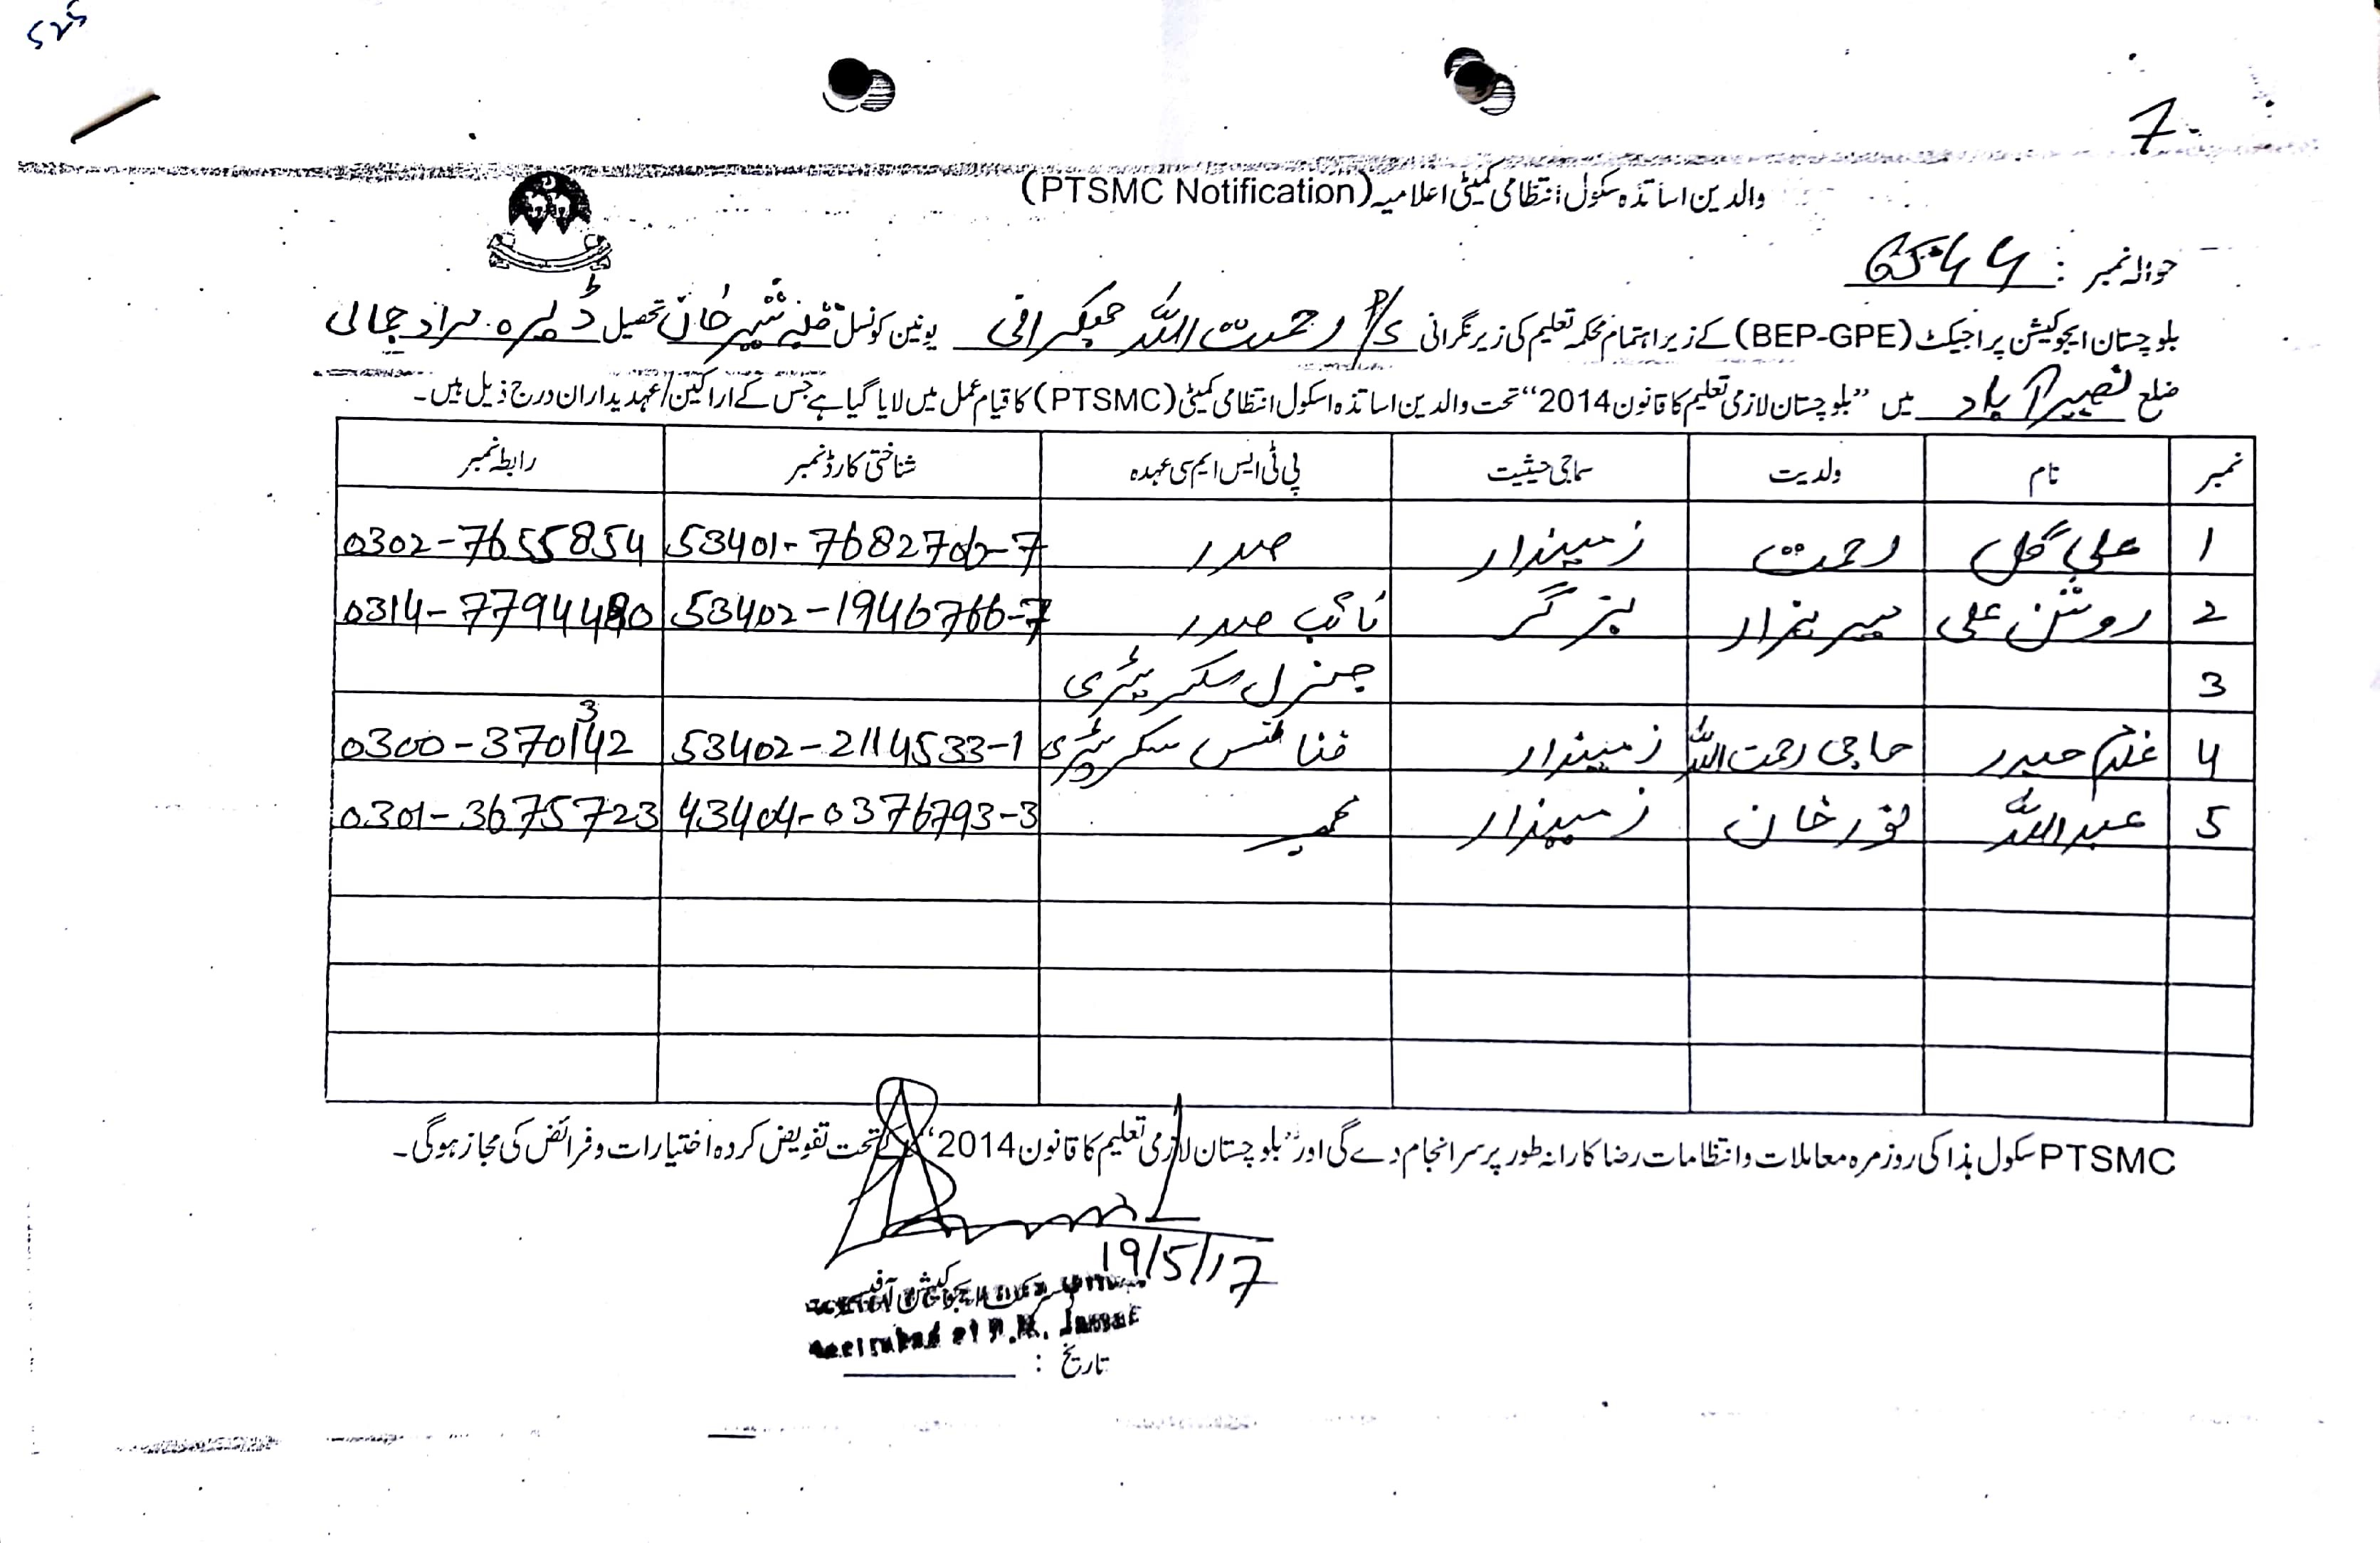 525
7
والدین اساتذہ سکول انتظامی کمیٹی اعلامیہ (PTSMC Notification)
حوالہ نمبر :
بلوچستان ایجوکیشن پراجیکٹ (BEP-GPE) کے زیر اہتمام محکمہ تعلیم کی زیر نگرانی P/S رحمت اللہ یونین کونسل شیر خان تحصیل ڈیرہ مراد جمالی
ضلع نصیرآباد میں "بلوچستان لازمی تعلیم کا قانون 2014" تحت والدین اساتذہ اسکول انتظامی کمیٹی (PTSMC) کا قیام عمل میں لایا گیا ہے جس کے اراکین/عہدیداران درج ذیل ہیں۔
نمبر نام ولدیت سماجی حیثیت پی ٹی ایس ایم سی عہدہ شناختی کارڈ نمبر رابطہ نمبر
1 علی گل رحمت زمیندار صدر 0302-7655854
2 روشن علی میر ہزار بزگر نائب صدر 53402-1946766-7
3 جنرل سکریٹری
4 غلام حیدر حاجی رحمت اللہ زمیندار فنانس سکریٹری 53402-2114533-1 0300-3701342
5 عبداللہ نور خان زمیندار ممبر 43404-0376793-3 0301-3675723
PTSMC سکول ہذا کی روزمرہ معاملات و انتظامات رضا کارانہ طور پر سر انجام دے گی اور "بلوچستان لازمی تعلیم کا قانون 2014" کے تحت تفویض کردہ اختیارات و فرائض کی مجاز ہوگی۔
19/5/17
تاریخ :